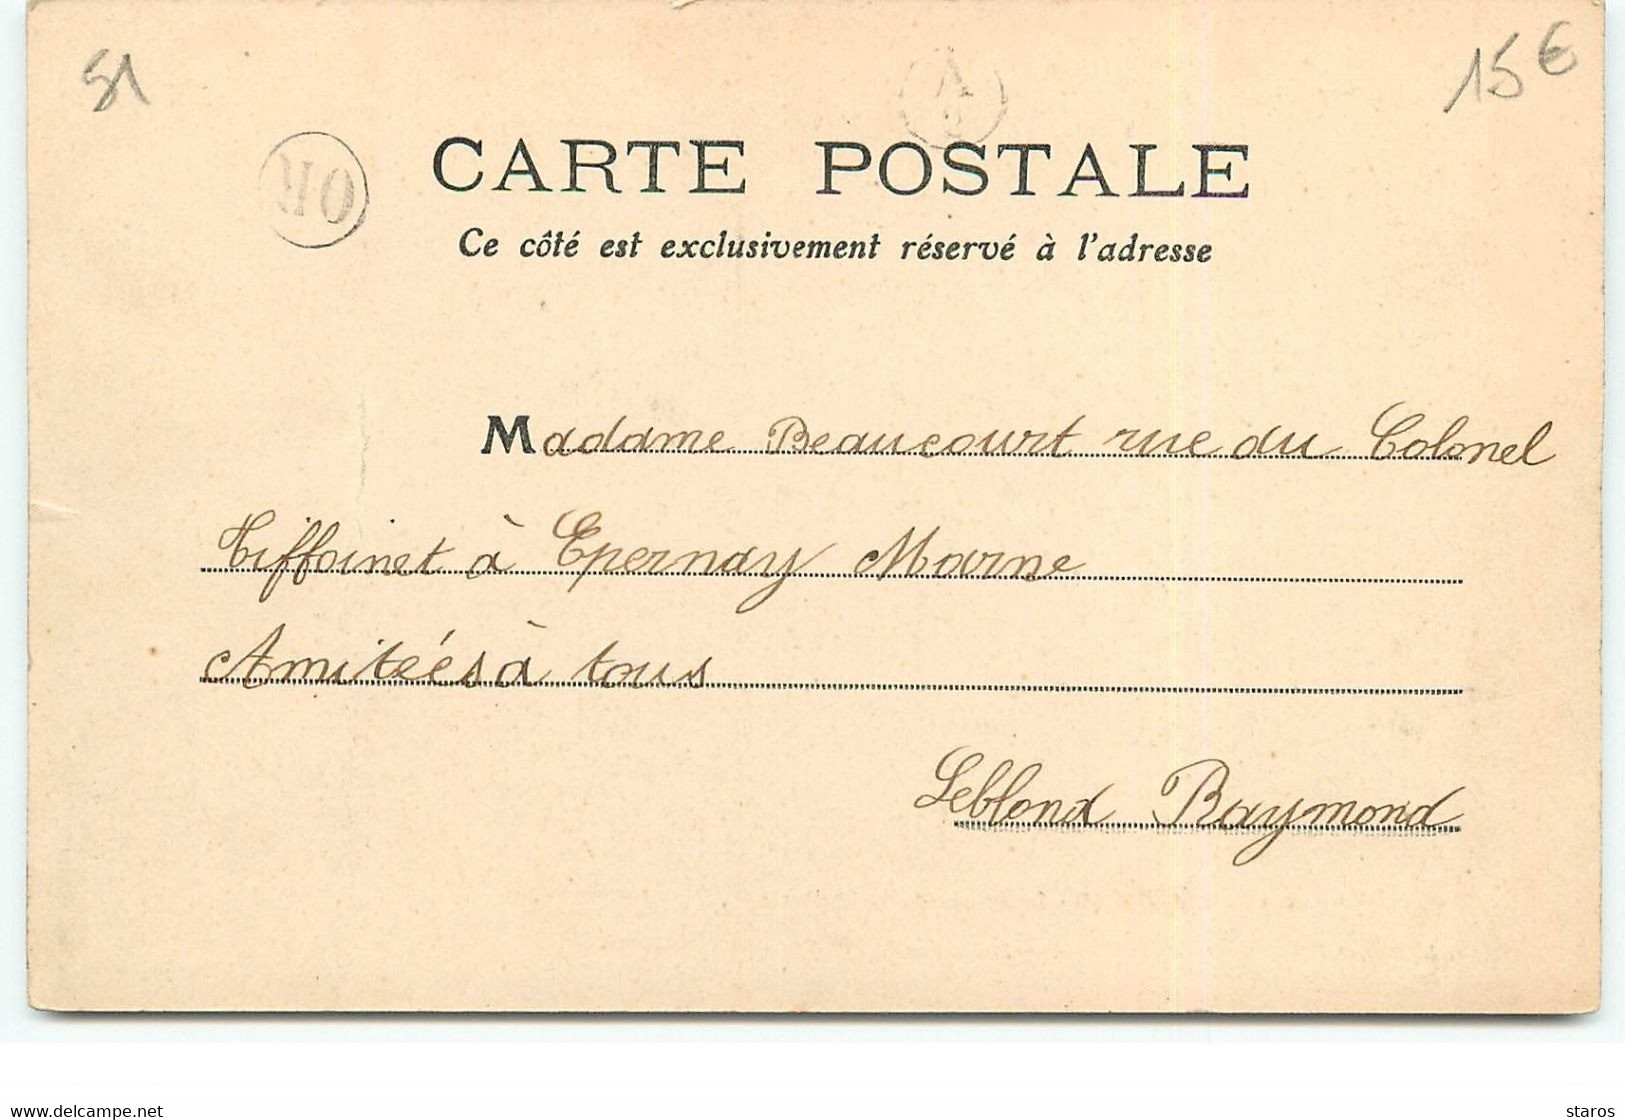 51
15 €
CARTE POSTALE
Ce côté est exclusivement réservé à l'adresse
Madame Beaucourt rue du Colonel
Tiffoinet à Epernay Marne
Amiteés à tous
Leblond Raymond
www.delcampe.net
staros